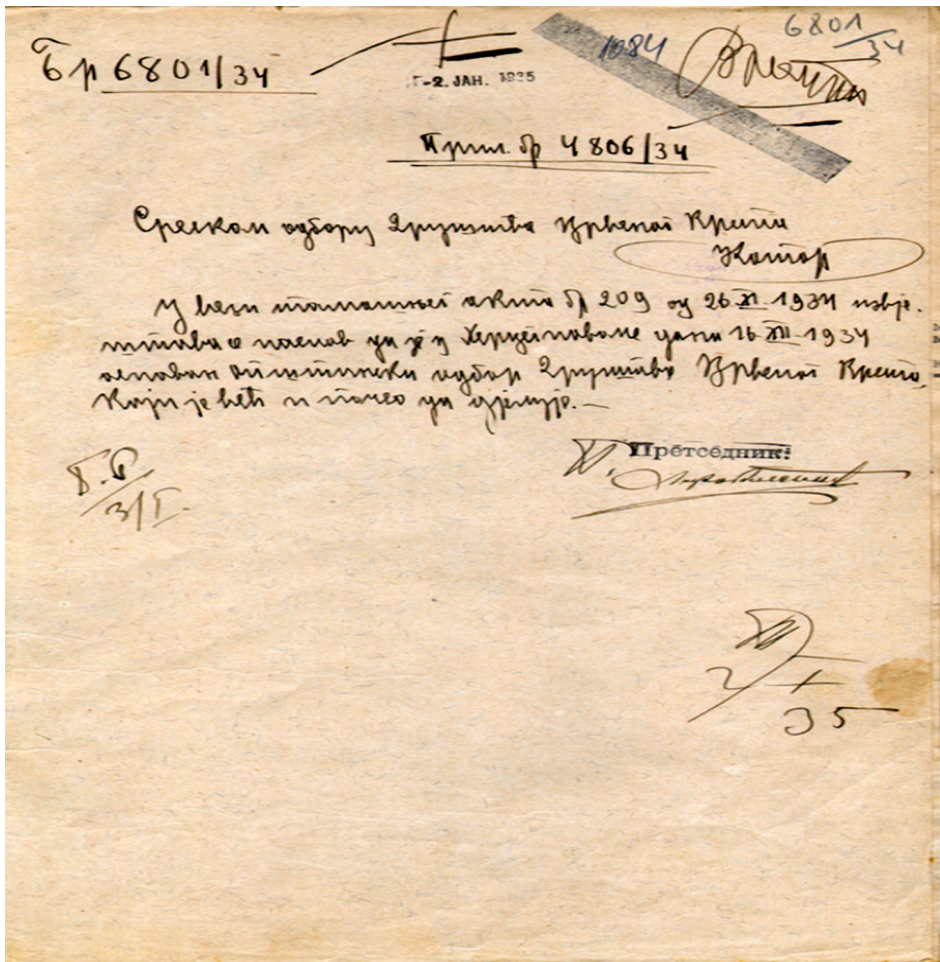 6801/34
Бр 6801/34
1084
-2. ЈАН. 1935
Прил. бр 4806/34
Среском одбору Друштва Црвеног Крста
Котор
У вези тамошњег акта бр 209 од 26.XI.1934 извје-
штава се наслов да је у Херцегновоме дана 16.XII.1934
основан општински одбор Друштва Црвеног Крста,
који је већ и почео да дјелује.—
Претседник:
3/I.
2/I
35